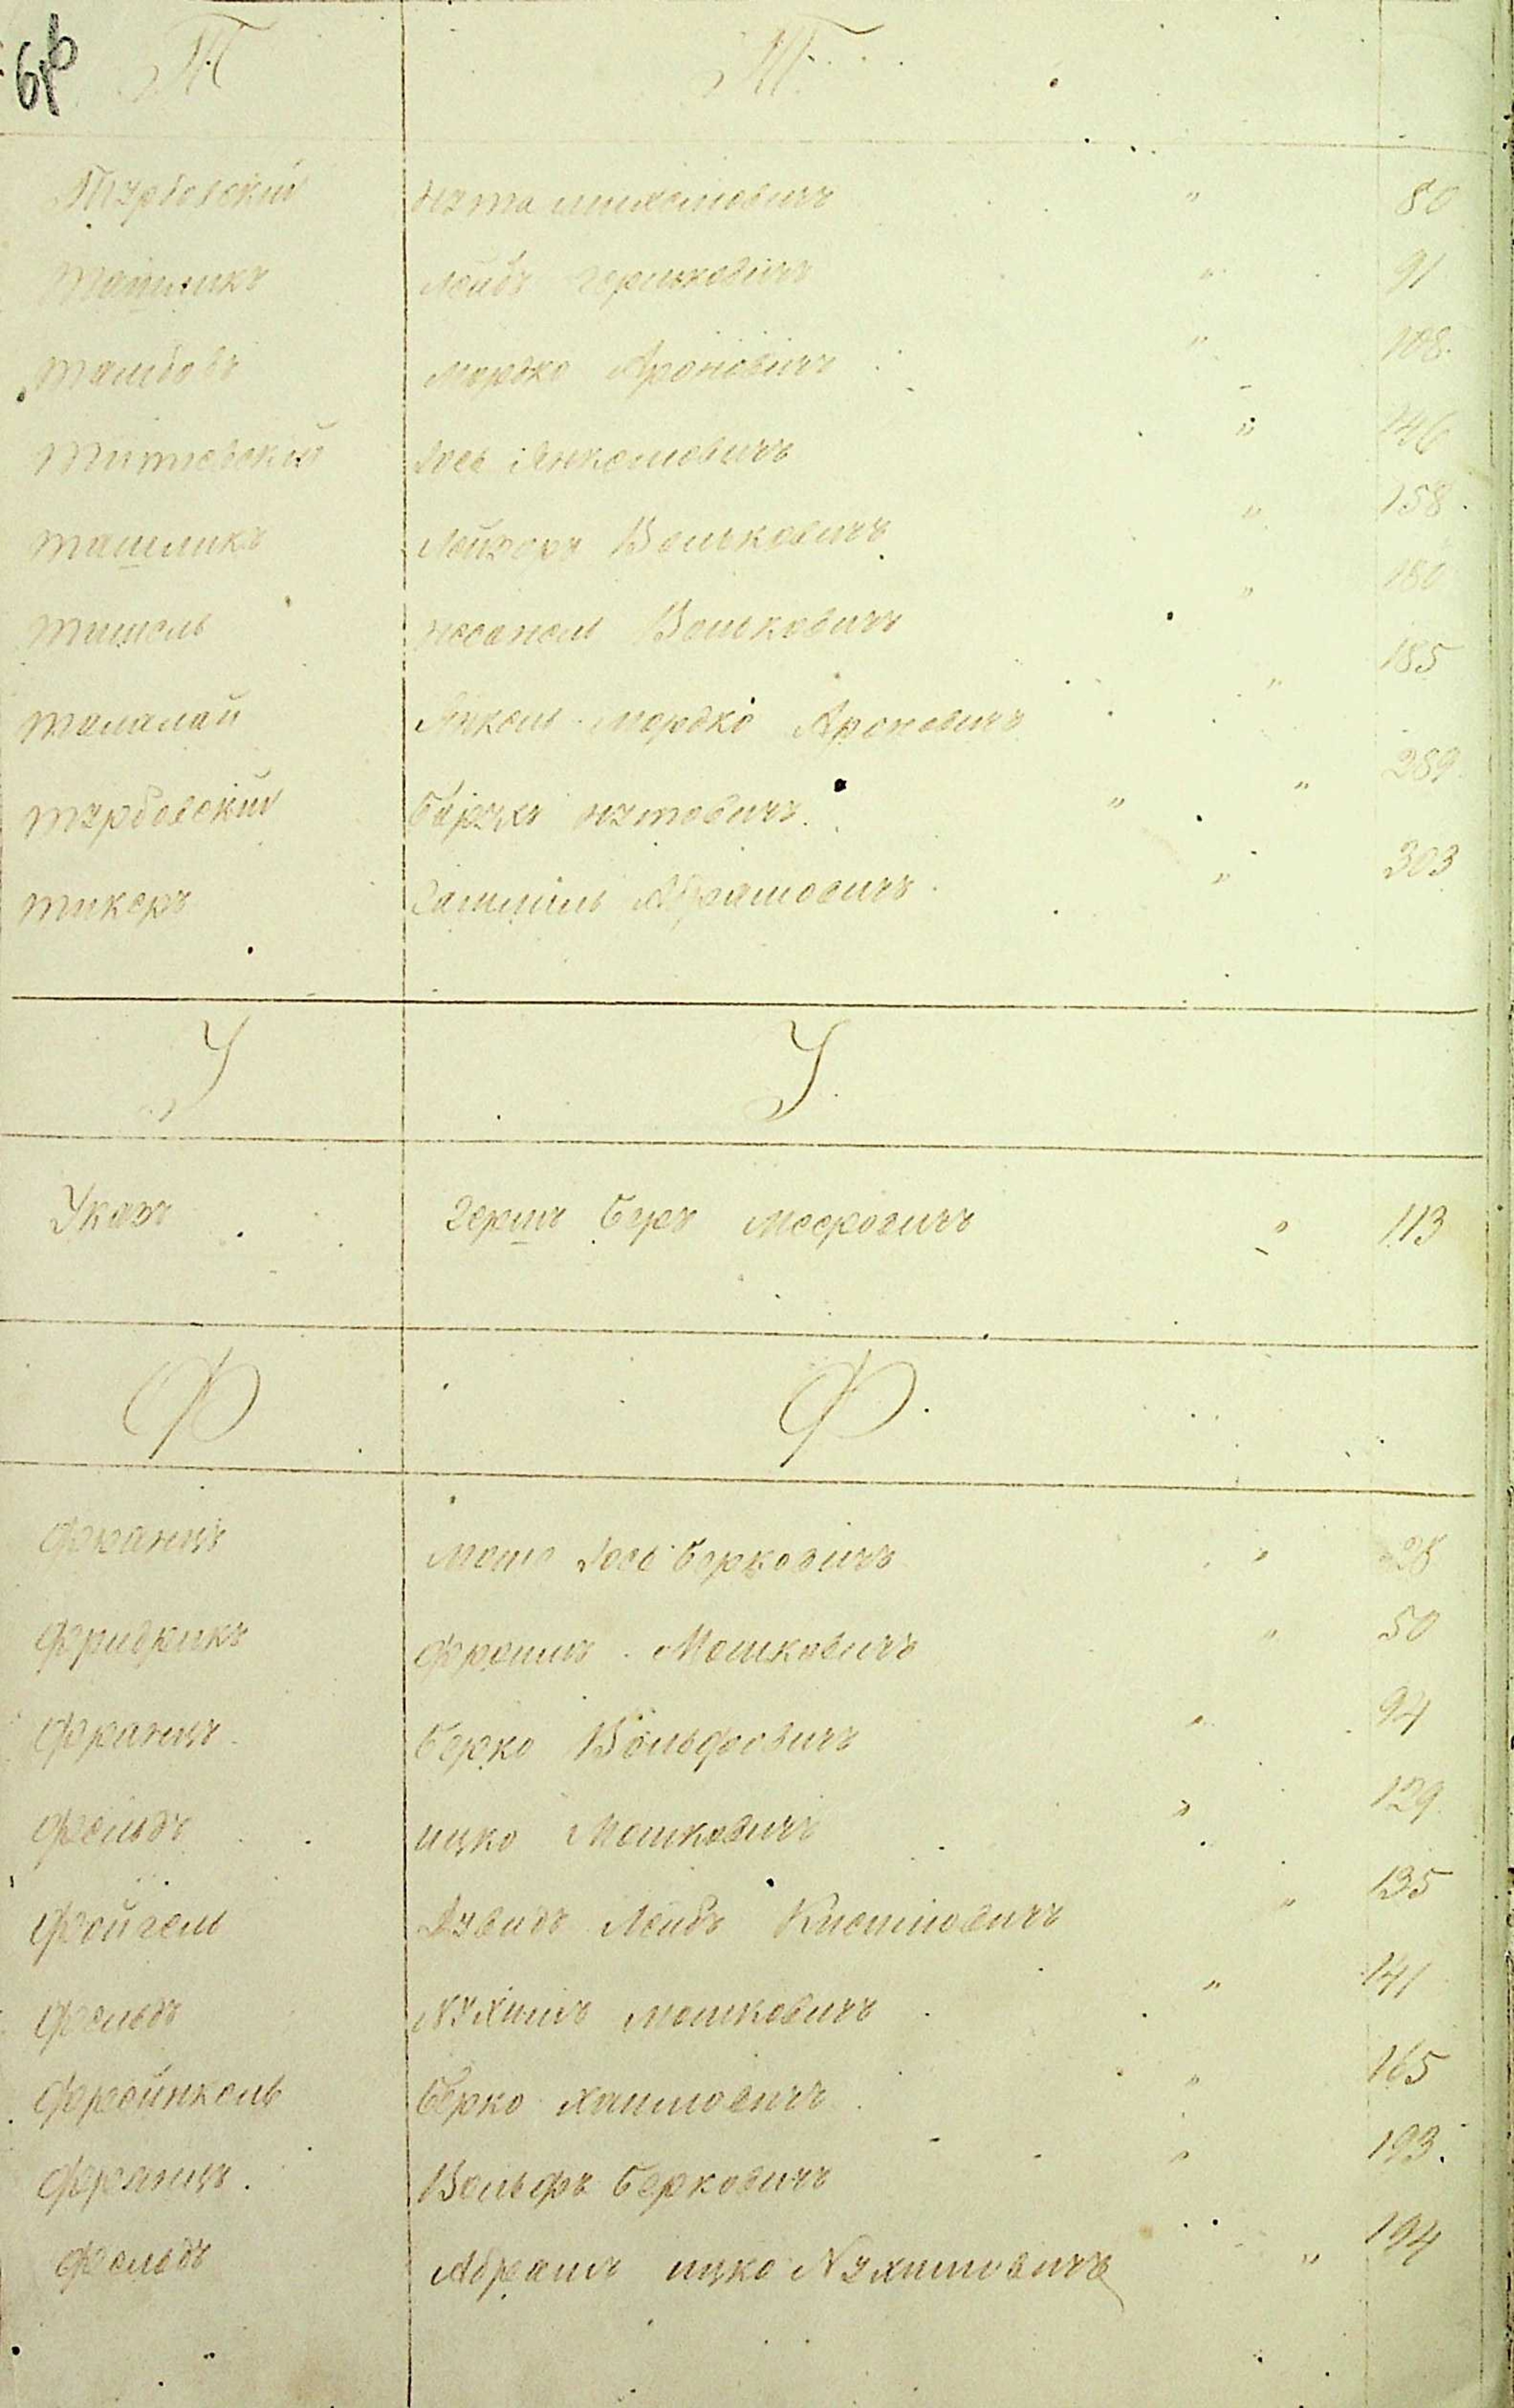 Т Т
Турбовский Нута " 80
Ташликъ Лейбъ Гершковичъ " 91
Мордко Ароновичъ " 108
Іось Янкелевичъ " 146
Ташликъ Лейзоръ Волковичъ " 158
Тишель Волковичъ " 180
Талалай Янкель Мордко Ароновичъ " 185
Турбовскій Борухъ Нутовичъ " " 289
Тикеръ Самуиль Абрамовичъ " 303
У У.
Указъ Гершъ Беръ Мееровичъ " 113
Ф Ф.
Францъ Мошо Іось Берковичъ " 28
Фридрихъ Фроимъ Мошковичъ " 50
Францъ Берко Вольфовичъ " 94
Фельдъ Ицко Мошковичъ " 129
Фейгель Дувидъ Лейбъ " 135
Фельдъ Нухимъ Мошковичъ " 141
Френкель Берко Хаимовичъ " 165
Францъ. Вольфъ Берковичъ " 193.
Фельдъ Абрамъ Ицко Нухимовичъ " 194